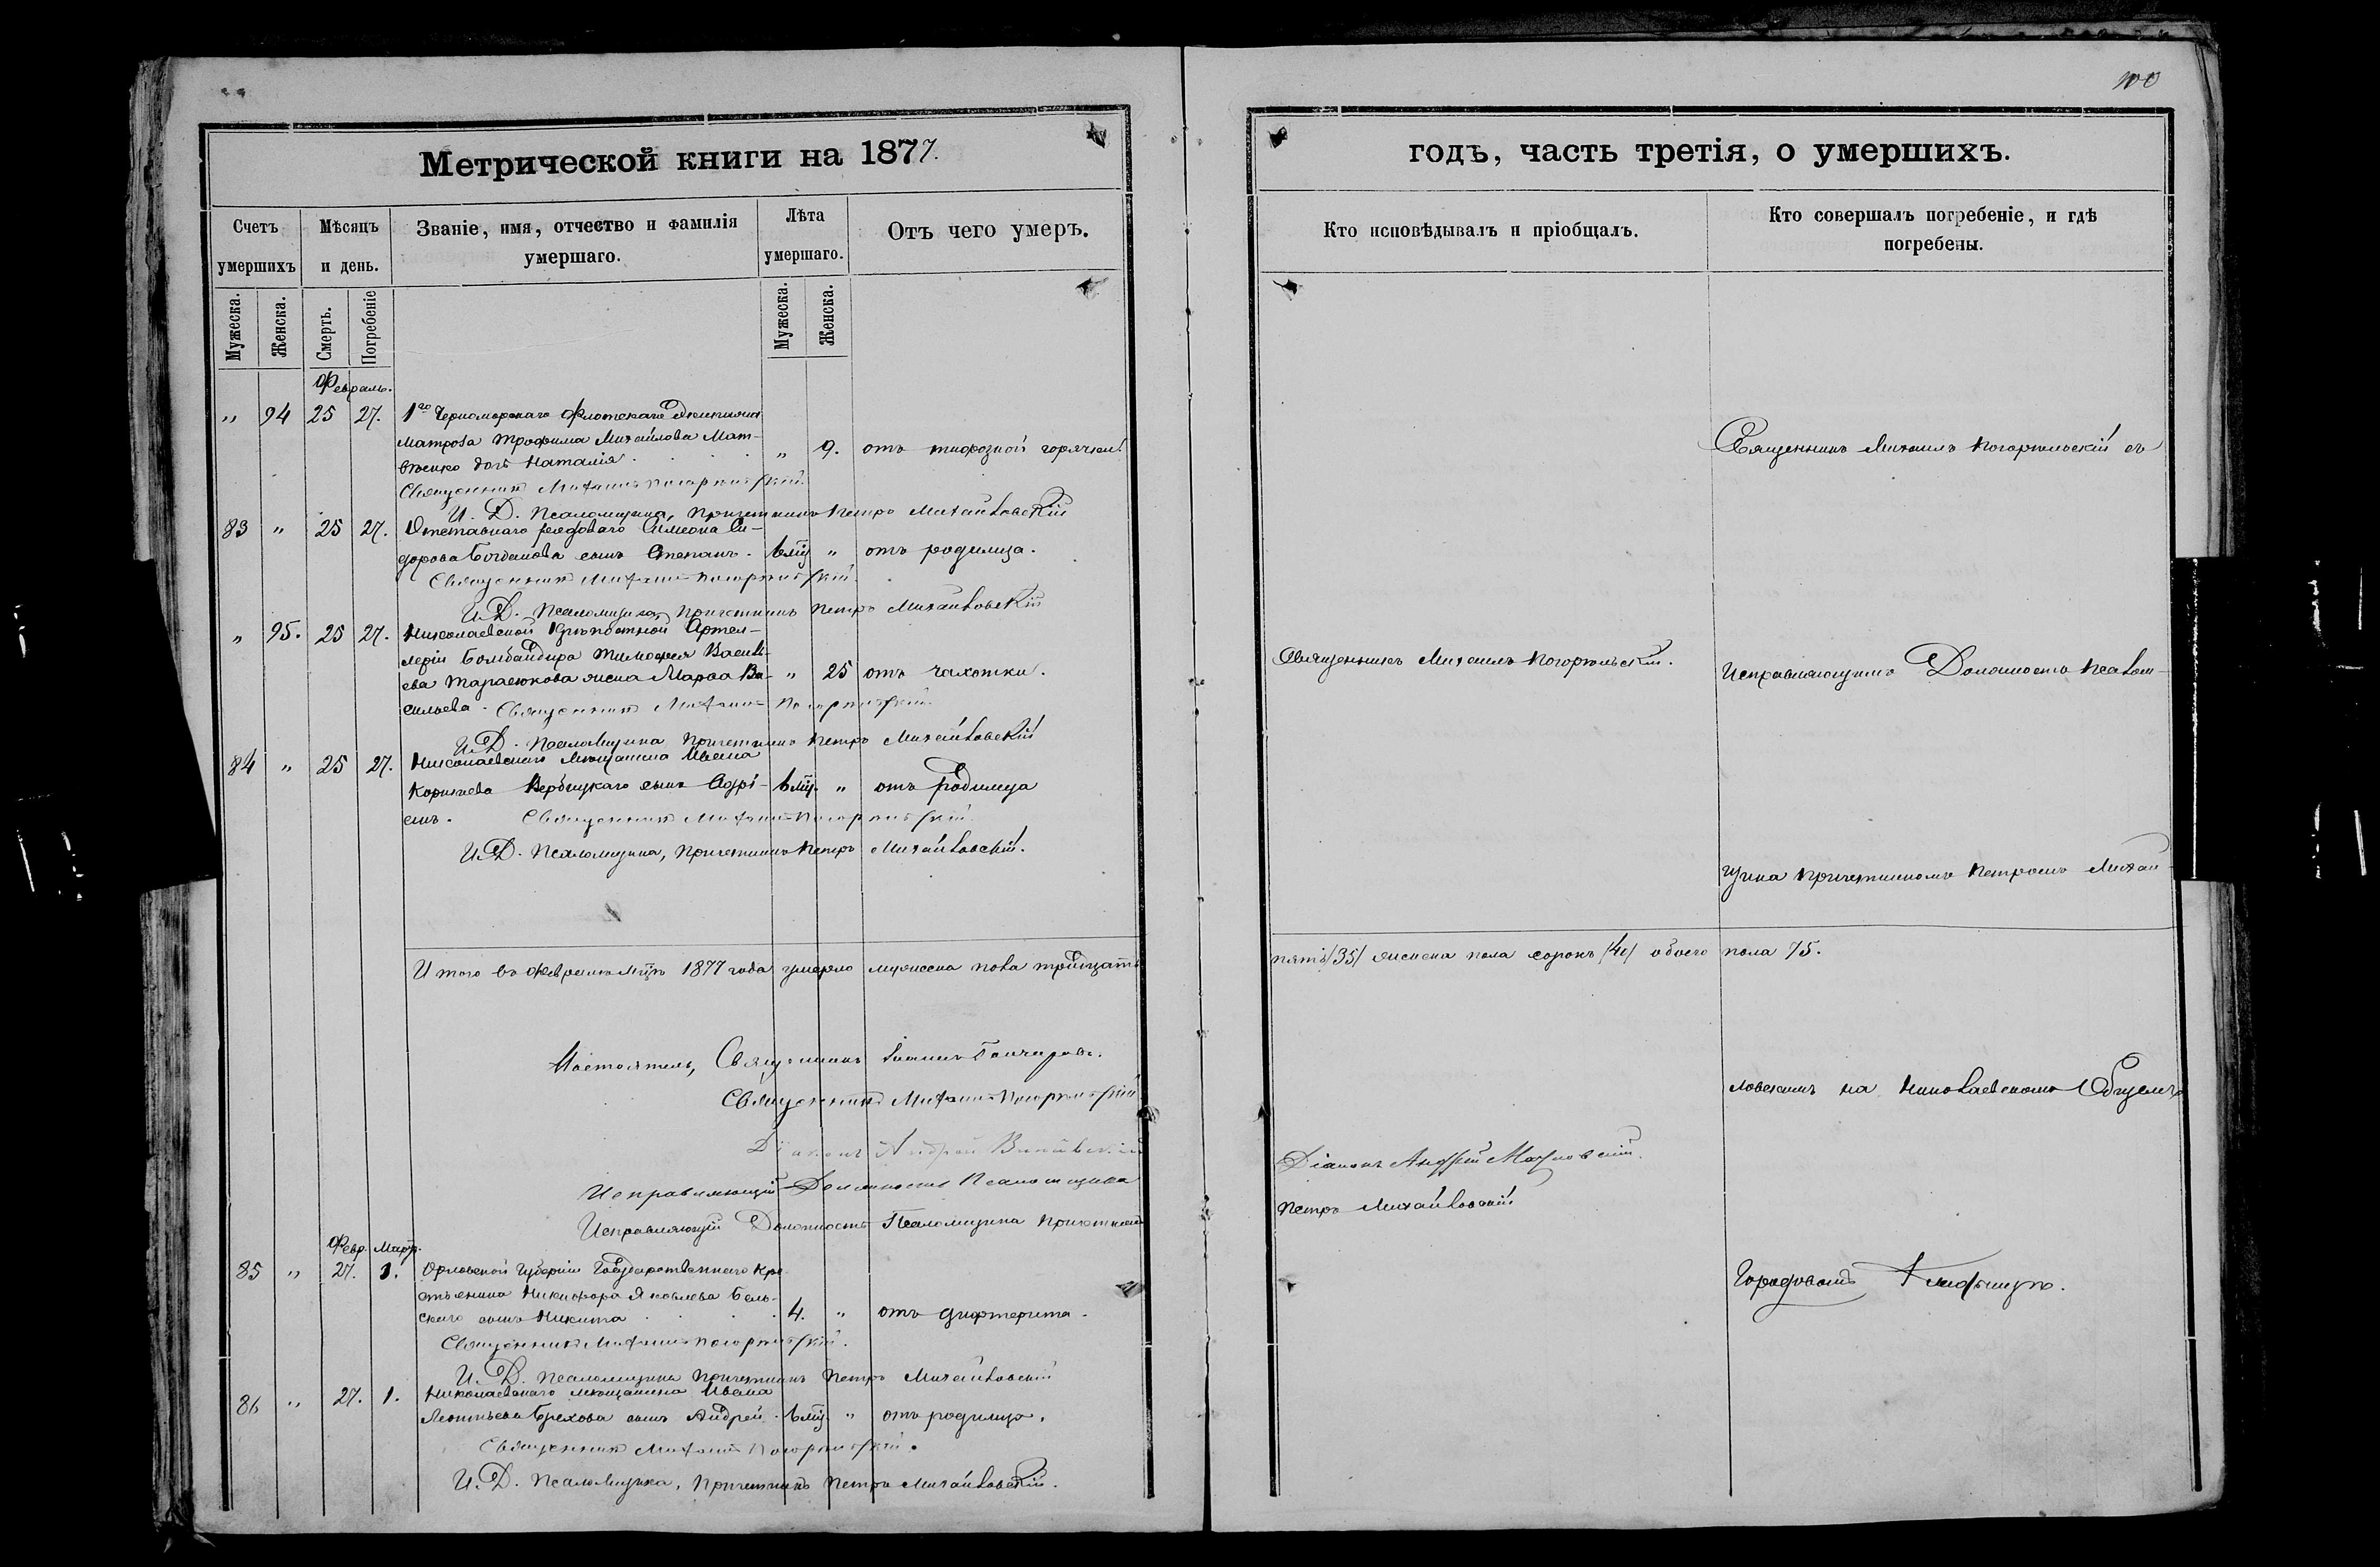 100
Метрической книги на 1877.
годъ, часть третія, о умершихъ.
Счетъ умершихъ
Мѣсяцъ и день.
Званіе, имя, отчество и фамилія умершаго.
Лѣта умершаго.
Отъ чего умеръ.
Кто исповѣдывалъ и пріобщалъ.
Кто совершалъ погребеніе, и гдѣ погребены.
Мужеска. Женска. Смерть. Погребеніе Мужеска. Женска.
Февраль.
„ 94 25 27. 1го Черноморскаго Флотскаго Экипажа
Матроза Трофима Михайлова Мат-
вѣенко дочь Наталія „ 9. отъ тифозной горячки
Священникъ Михаилъ Погорѣльскій съ
Священникъ Михаилъ Погорѣльскій.
И. Д. Псаломщика, Причетникъ Петръ Михайловскій
83 „ 25 27. Отставнаго рядоваго Симеона Си-
дорова Богданова сынъ Степанъ. 6 мцъ „ отъ родимца.
Священникъ Михаилъ Погорѣльскій.
И. Д. Псаломщика, Причетникъ Петръ Михайловскій
„ 95. 25 27. Николаевской Крѣпостной Артил-
леріи Бомбандира Тимофея Василь-
ева Тарасюкова жена Марѳа Ва- „ 25 отъ чахотки.
Священникъ Михаилъ Погорѣльскій.
Исправляющимъ Должность Псалом-
сильева. Священникъ Михаилъ Погорѣльскій.
И. Д. Псаломщика Причетникъ Петръ Михайловскій
84 „ 25 27. Николаевскаго Мѣщанина Ивана
Корнѣева Вербицкаго сынъ Адрі- 6 мц. „ отъ родимца
анъ. Священникъ Михаилъ Погорѣльскій
И. Д. Псаломщика, Причетникъ Петръ Михайловскій.
щика Причетникомъ Петромъ Михай-
Итого въ Февралѣ Мцѣ 1877 года умерло мужеска пола тридцать
пять /35/ женска пола сорокъ /40/ обоего пола 75.
Настоятель, Священникъ Іоаннъ Гончаровъ.
Священникъ Михаилъ Погорѣльскій
ловскимъ на Николаевскомъ Общемъ
Діаконъ Андрей
Діаконъ Андрей
Исправляющій Должность Псаломщика
Исправляющій Должность Псаломщика Причетникъ
Петръ Михайловскій
Февр. Март.
85 „ 27. 1. Орловской Губерніи Государственнаго Кре-
стьянина Никифора Яковлева Бель-
скаго сынъ Никита 4. „ отъ дифтерита.
Городовомъ Кладбищѣ.
Священникъ Михаилъ Погорѣльскій.
И. Д. Псаломщика Причетникъ Петръ Михайловскій
86 „ 27. 1. Николаевскаго мѣщанина Ивана
Леонтьева Грехова сынъ Андрей. 6 мц. „ отъ родимца.
Священникъ Михаилъ Погорѣльскій.
И. Д. Псаломщика, Причетникъ Петръ Михайловскій.